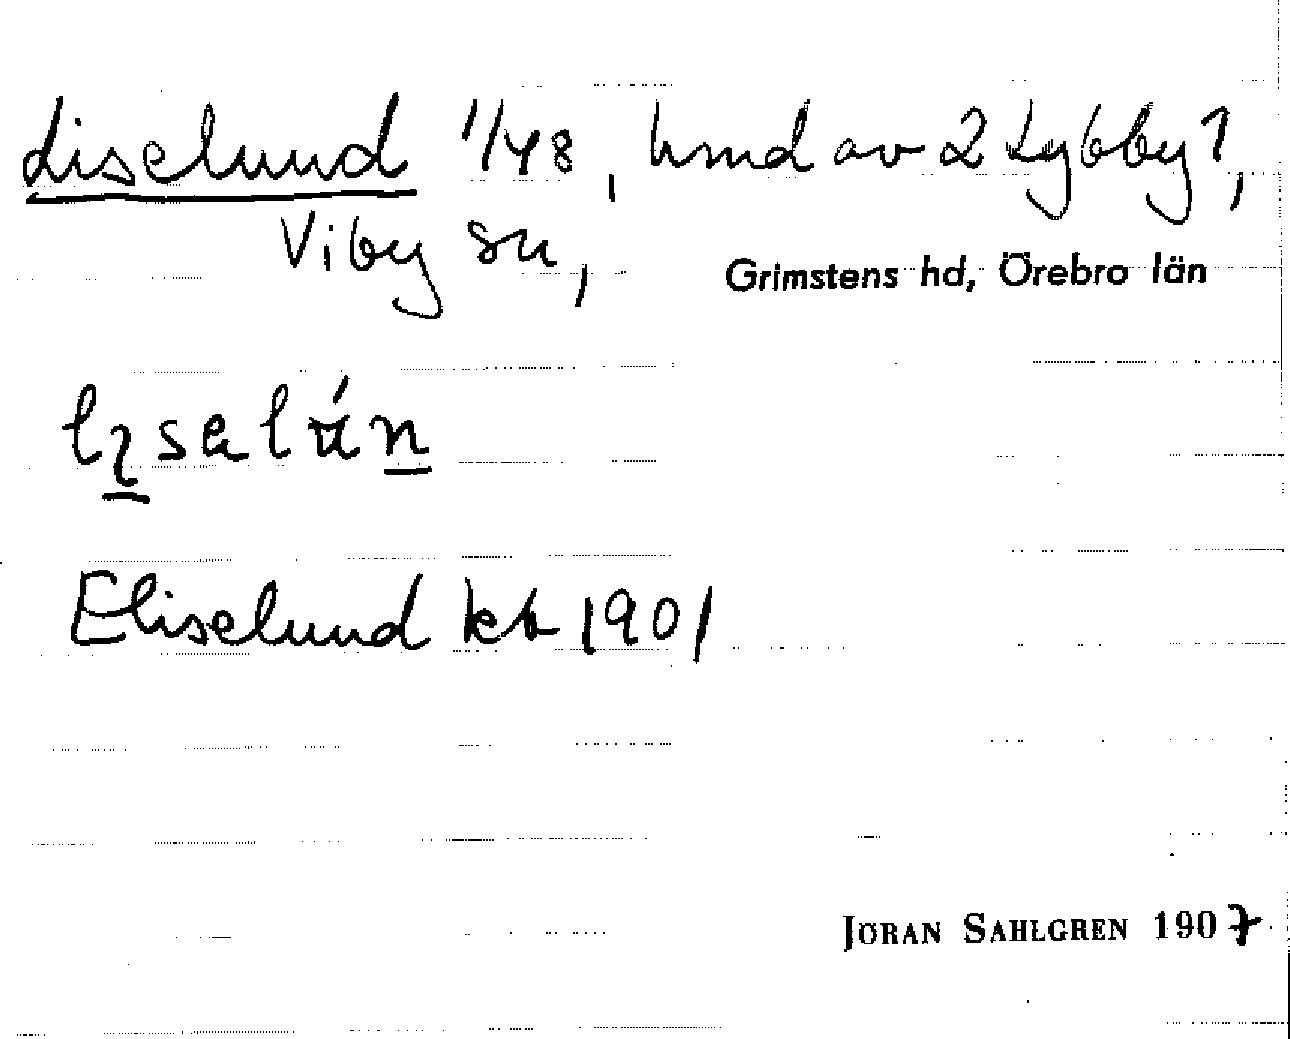 Liselund 1/48, hmd av 2 Lybby 1,
Viby sn,
Grimstens hd, Örebro län
Eliselund kb 1901
JÖRAN SAHLGREN 1907